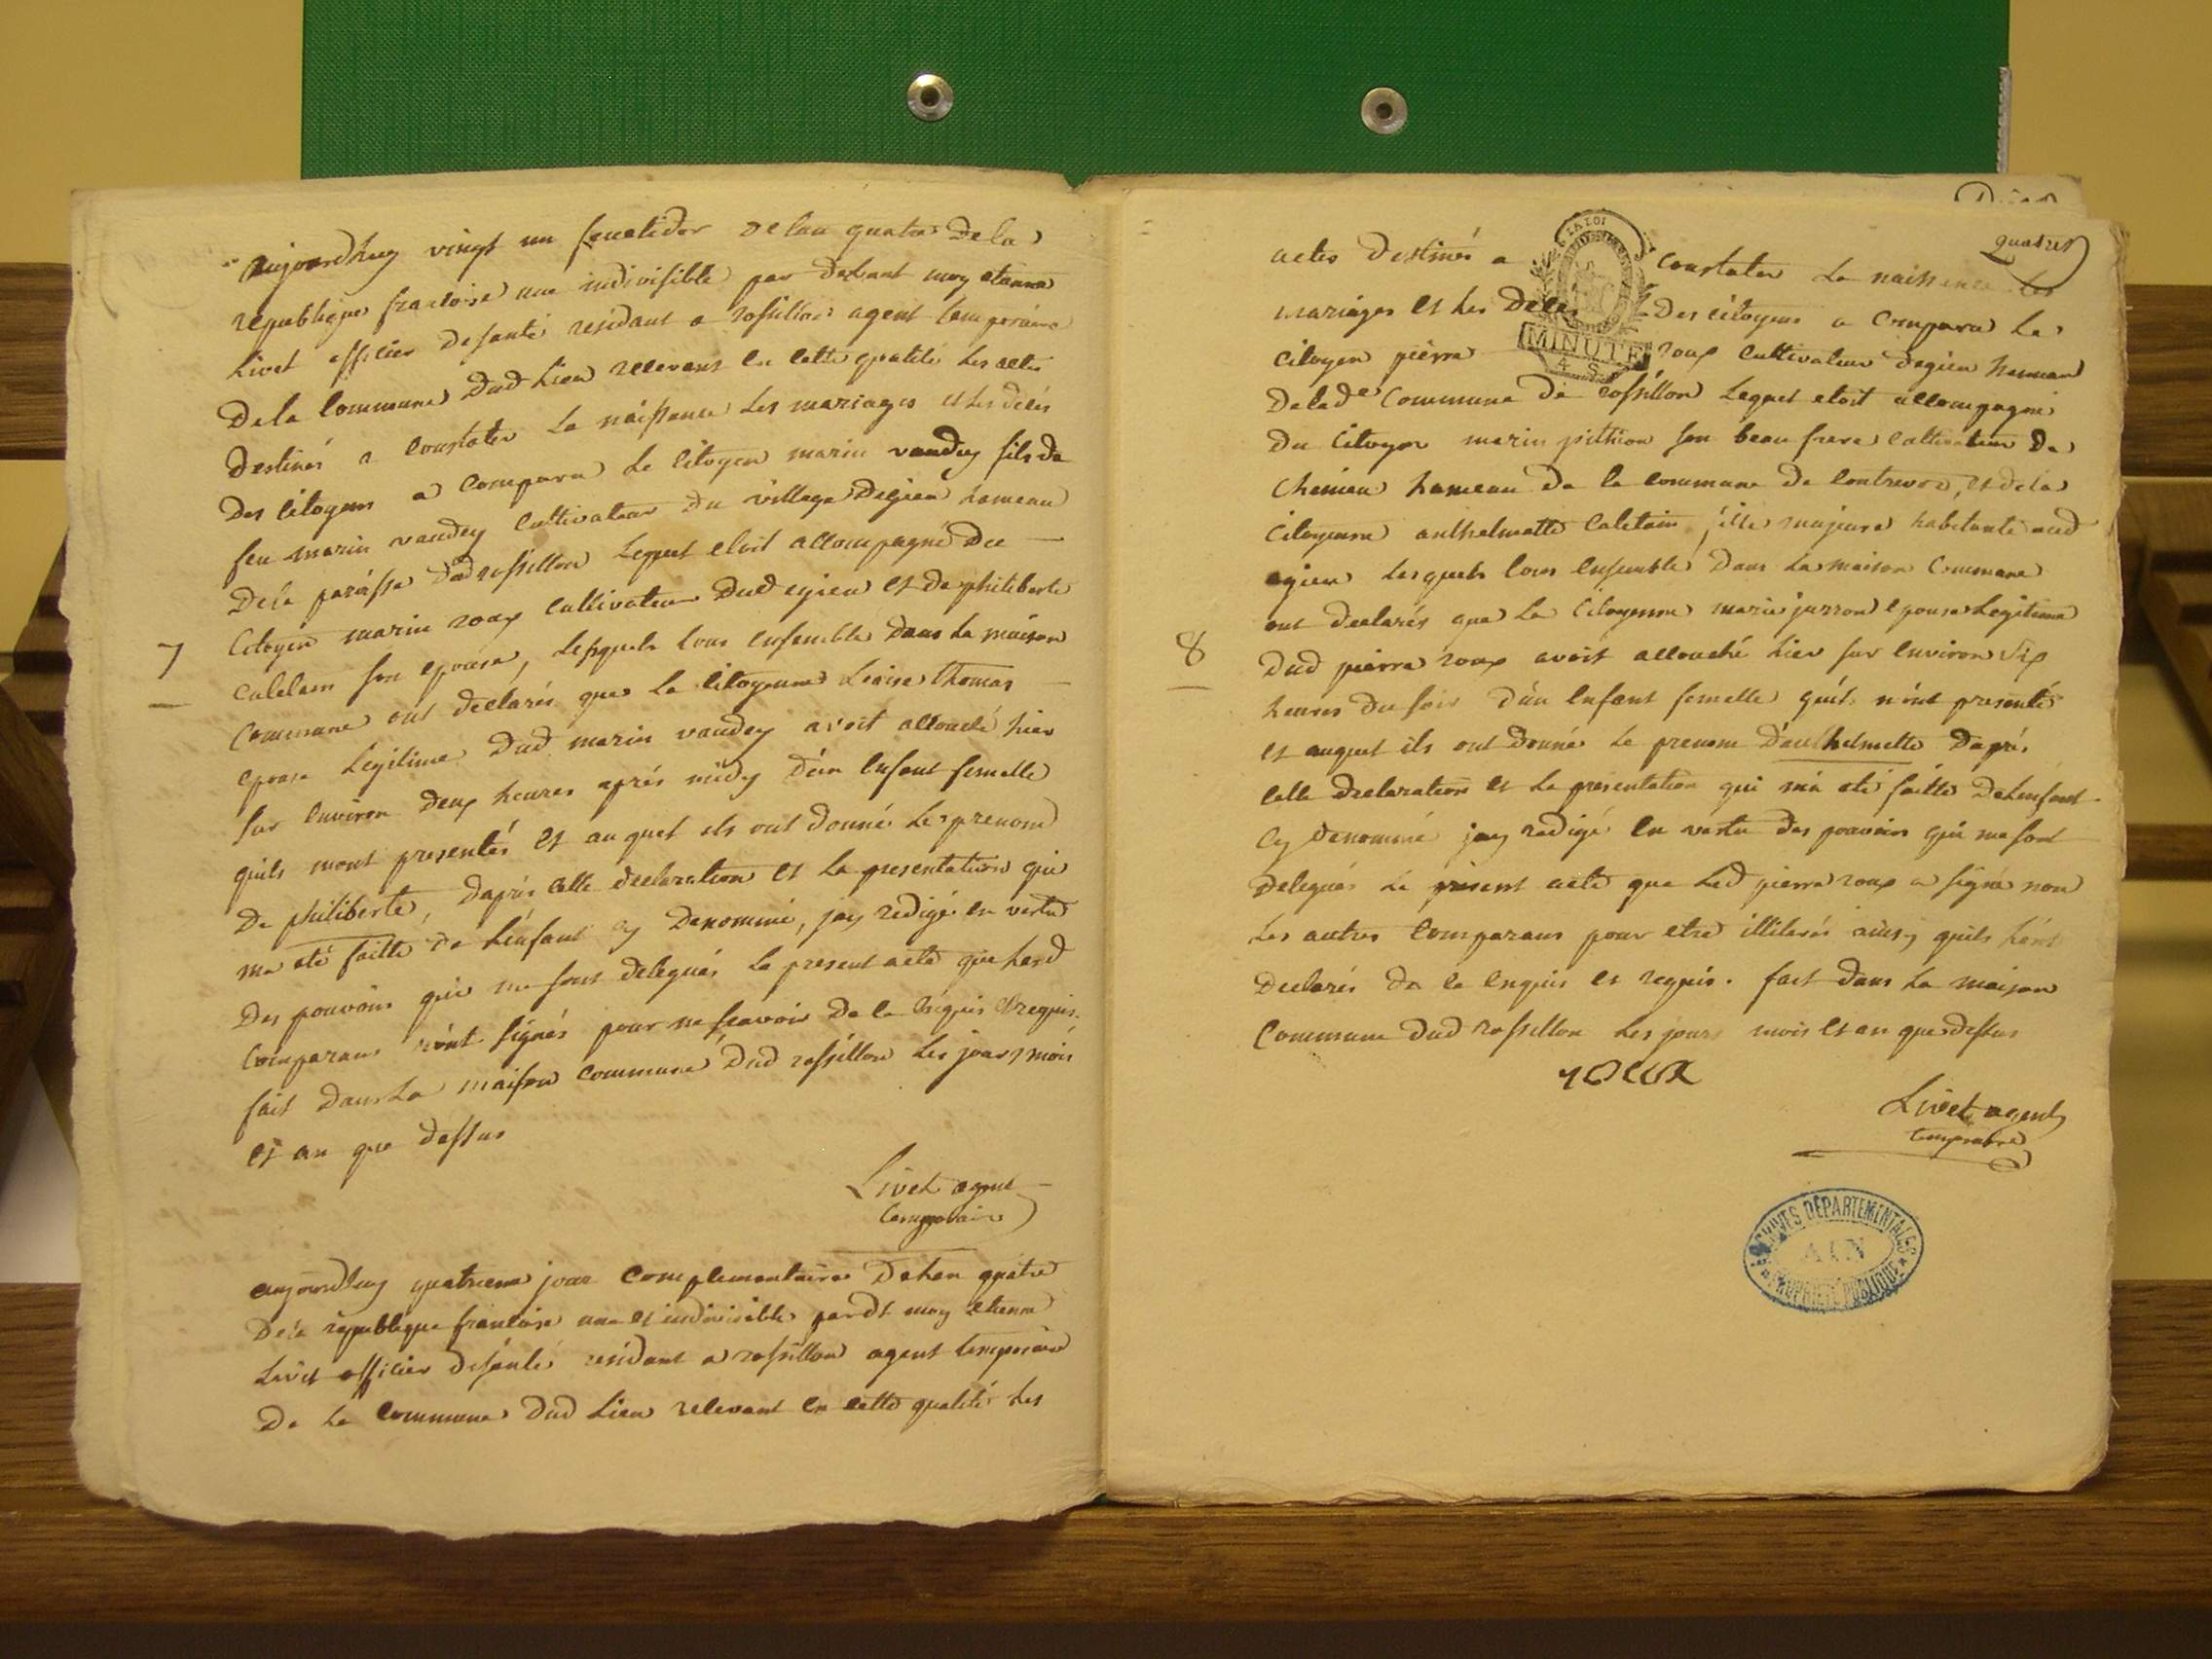 aujourdhuy vingt un fructidor de lan quatre de la
republique francoise une indivisible par devant moy etienne
Livet officier de santé residant a rossillon agent temporaire
de la Commune dud Lieu recevant en cette qualité les actes
destinés a constater la naissance les mariages et les décés
des citoyens a comparu le citoyen marin vaudey fils de
feu marin vaudey cultivateur du village degieu hameau
de la paroisse dud rossillon lequel etoit accompagné du
7
Citoyen marin roux cultivateur dud egieu et de philiberte
Caletain son epouse, lesquels tous ensemble dans la maison
Commune ont declarés que la Citoyenne Thomas
epouse Legitime dud marin vaudey avoit accouché hier
sur environ deux heures aprés midy d'un enfant femelle
quils mont presentés et auquel ils ont donné le prenom
de philiberte, daprés cette declaration et la presentation qui
ma eté faitte de l'enfant cy denommé, jay redigé en vertu
des pouvoirs qui me sont delegués le present acte que lesd
Comparans n'ont signés pour ne scavoir de ce enquis et requis.
fait dans la maison commune dud rossillon les jours mois
et an que dessus
Livet agent
temporaire
aujourdhuy quatrieme jour complementaire de lan quatre
de la republique francoise une et indivisible pardt moy etienne
Livet officier de santé residant a rossillon agent temporaire
de la commune dud Lieu recevant en cette qualité les
quatre
actes destinés a constater la naissance les
mariages et les décés des citoyens a comparu le
Citoyen pierre roux cultivateur degieu hameau
de lade Commune de rossillon lequel etoit accompagné
du Citoyen marin pithion son beau frere cultivateur de
Chemieu hameau de la commune de contrevoz, et de la
Citoyenne anthelmette Caletain fille majeure habitante aud
egieu lesquels tous ensemble dans la maison Commune
8
ont declarés que la Citoyenne marie juzron epouse Legitime
dud pierre roux avoit accouché hier sur environ six
heures du soir d'un enfant femelle qu'ils m'ont presenté
et auquel ils ont donné le prenom d'anthelmette daprés
cette declaration et la presentation qui m'a eté faitte de lenfant
cy denommé jay redigé en vertu des pouvoirs qui me sont
delegués le present acte que led pierre roux a signé non
les autres comparans pour etre illiterés ainsy quils l'ont
declarés de ce enquis et requis. fait dans la maison
Commune dud rossillon les jours mois et an que dessus
roux
Livet agent
temporaire
MINUTE
ARCHIVES DÉPARTEMENTALES
AIN
PROPRIÉTÉ PUBLIQUE